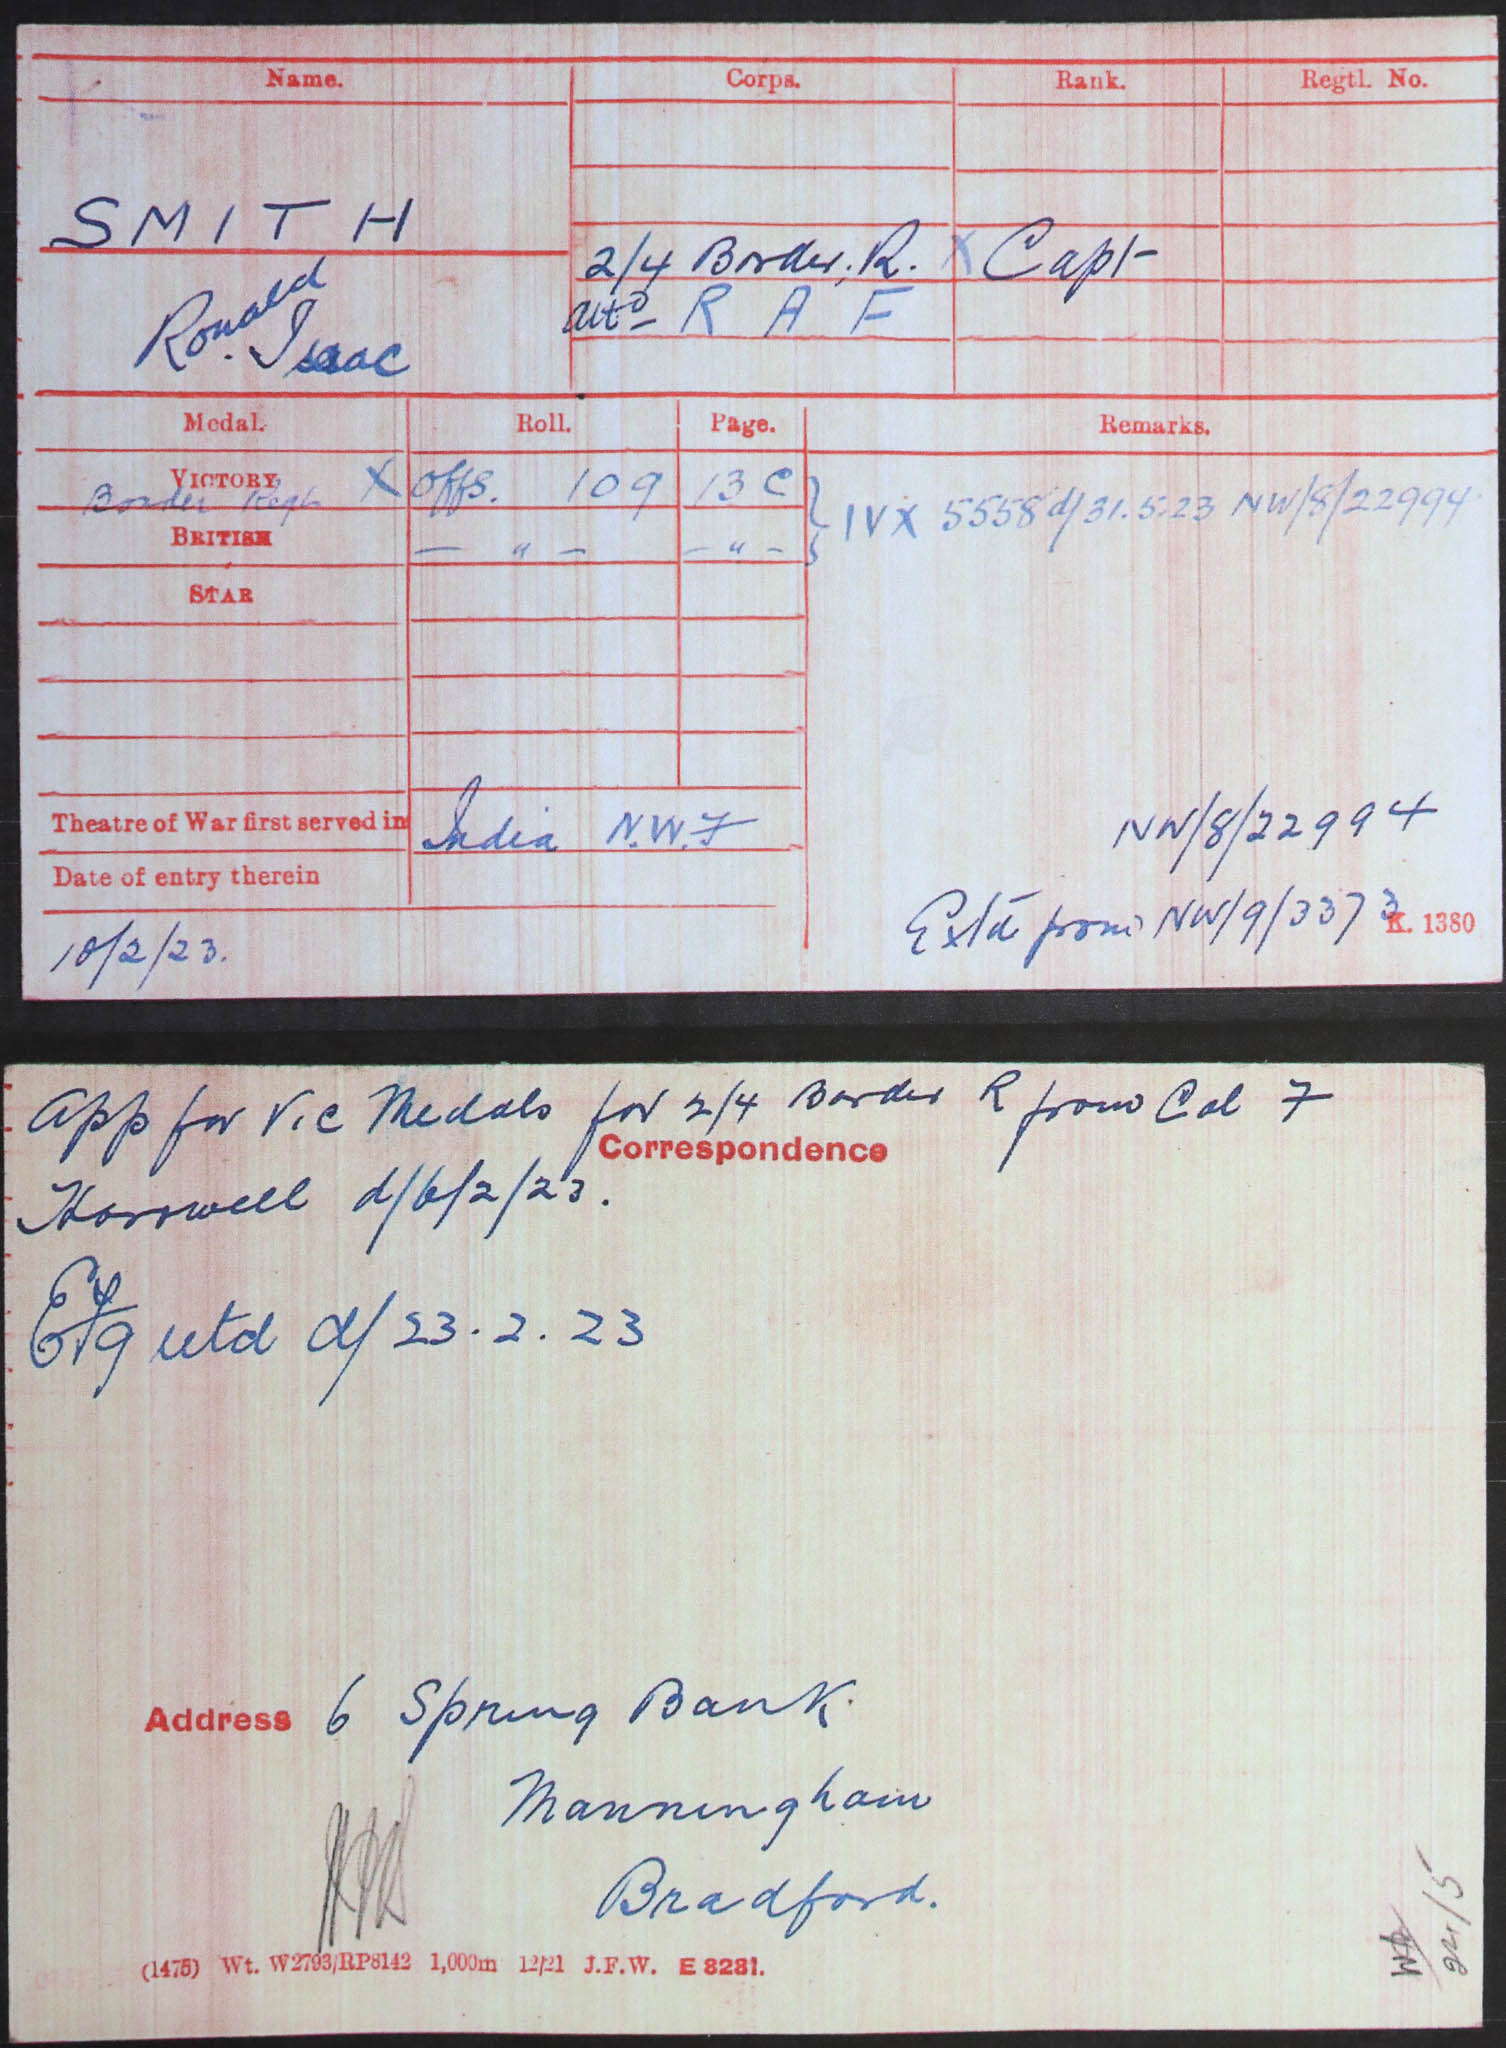 Name. Corps. Rank. Regtl. No.
SMITH
2/4 Border. R. X Capt
Ronald
attd RAF
Isaac
Medal. Roll. Page. Remarks.
VICTORY X Offs. 109 13 C
Border Regt
IVX 5558 d/31.5.23 NW/8/22994
BRITISH — " — — " —
STAR
Theatre of War first served in India N.W.F
NW/8/22994
Date of entry therein
Extd from NW/9/3373
K. 1380
10/2/23.
App for Vic Medals for 2/4 Border R from Col F
Correspondence
Harswell d/6/2/23.
utd d/ 23.2.23
Address 6 Spring Bank
Manningham
Bradford.
24/5
(1475) Wt. W2793/RP8142 1,000m 12/21 J.F.W. E 8281.